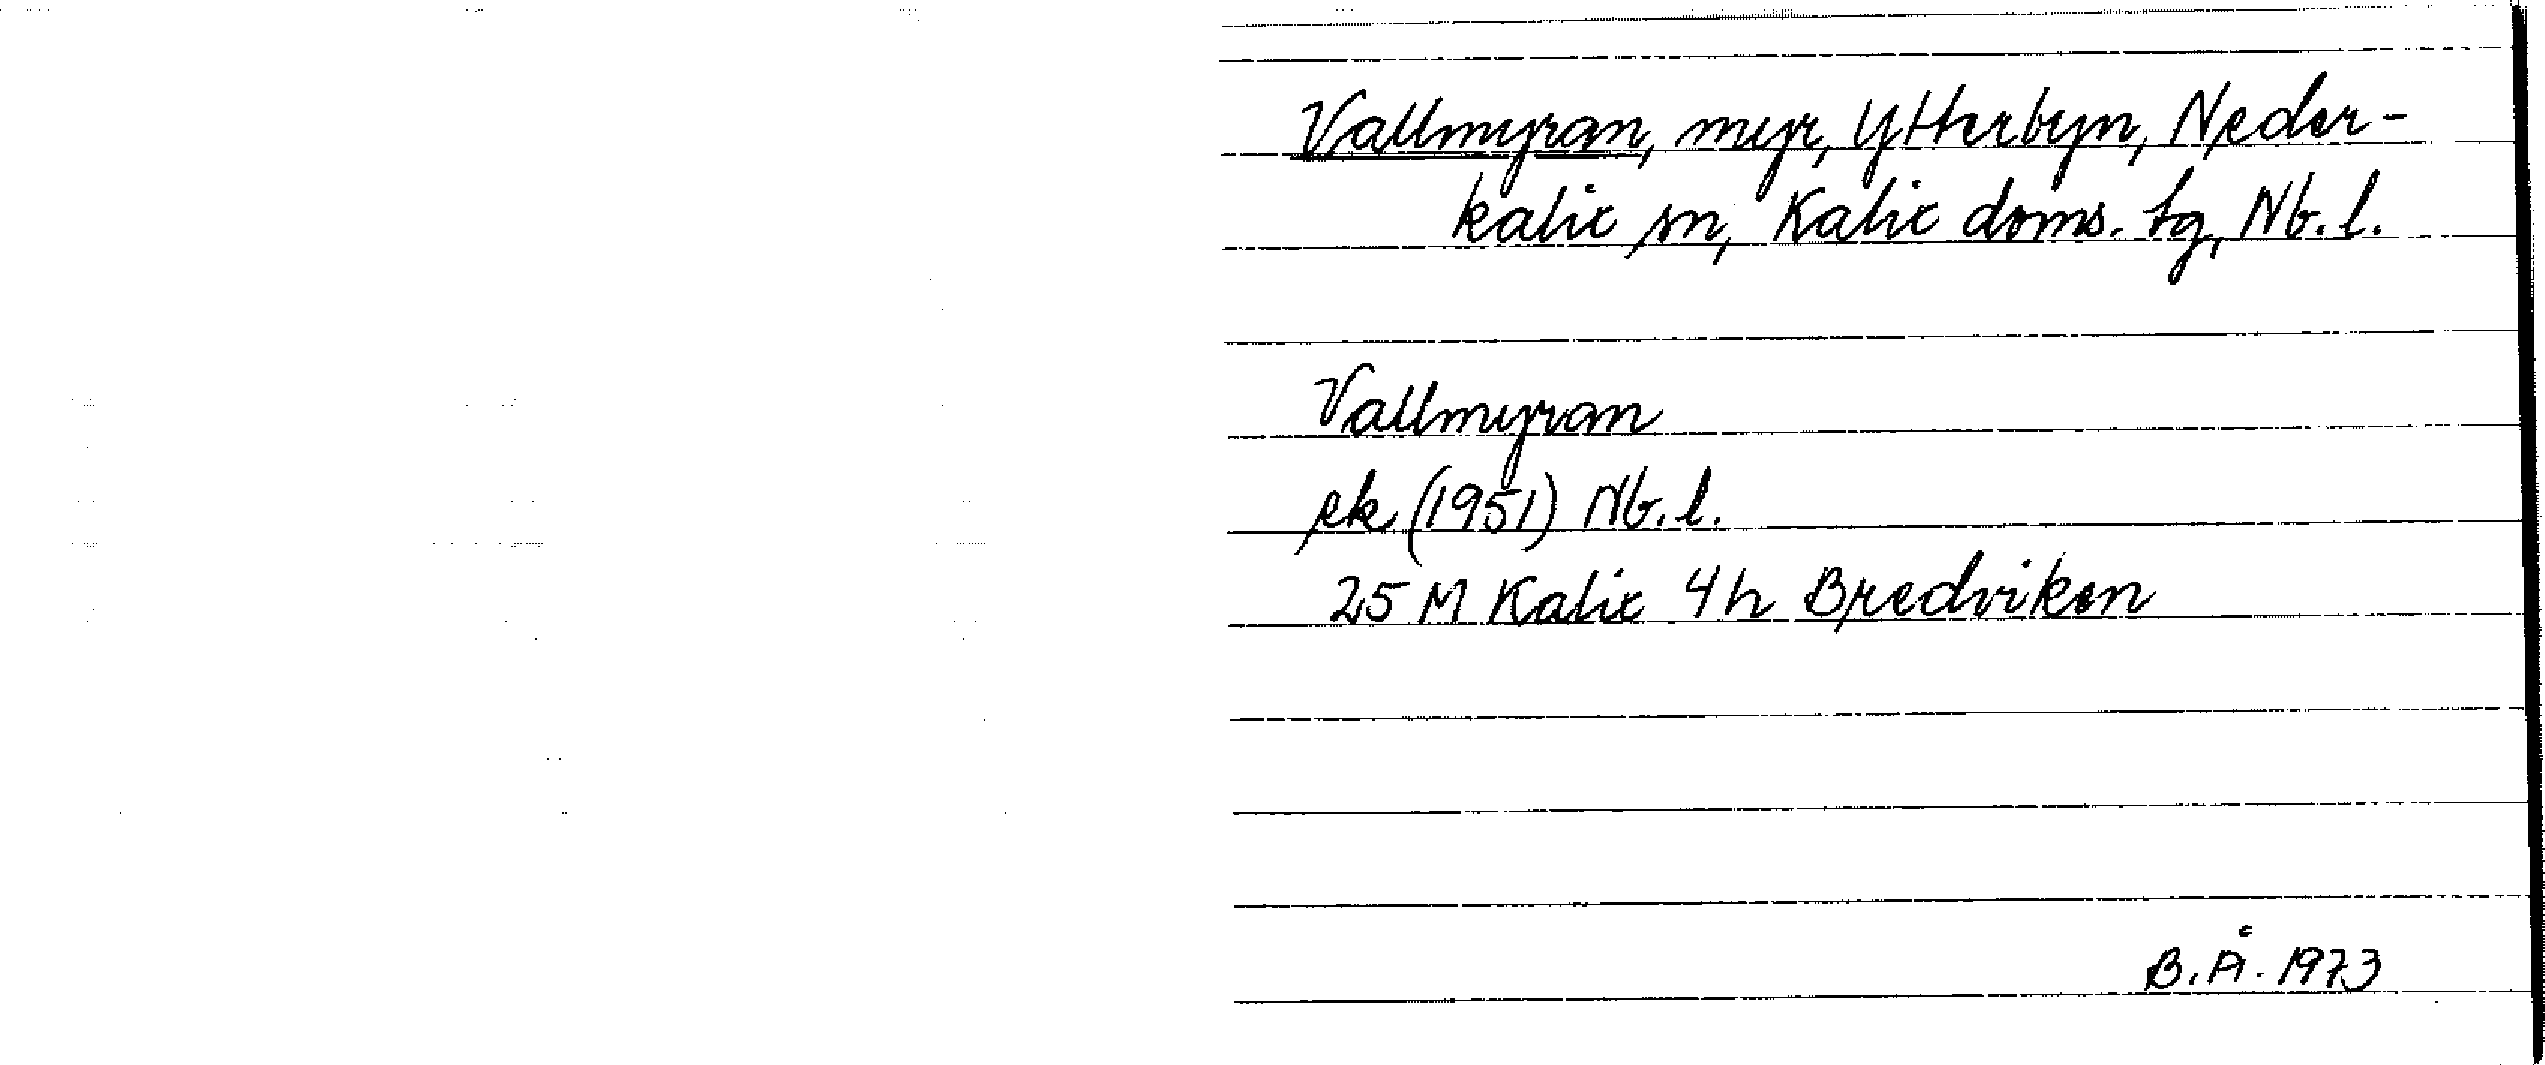 Vallmyran, myr, Ytterbyn, Neder-
kalix sn, Kalix doms. tg, Nb. l.
Vallmyran
ek (1951) Nb. l.
25 M Kalix 4h Bredviken
B. Å. 1973